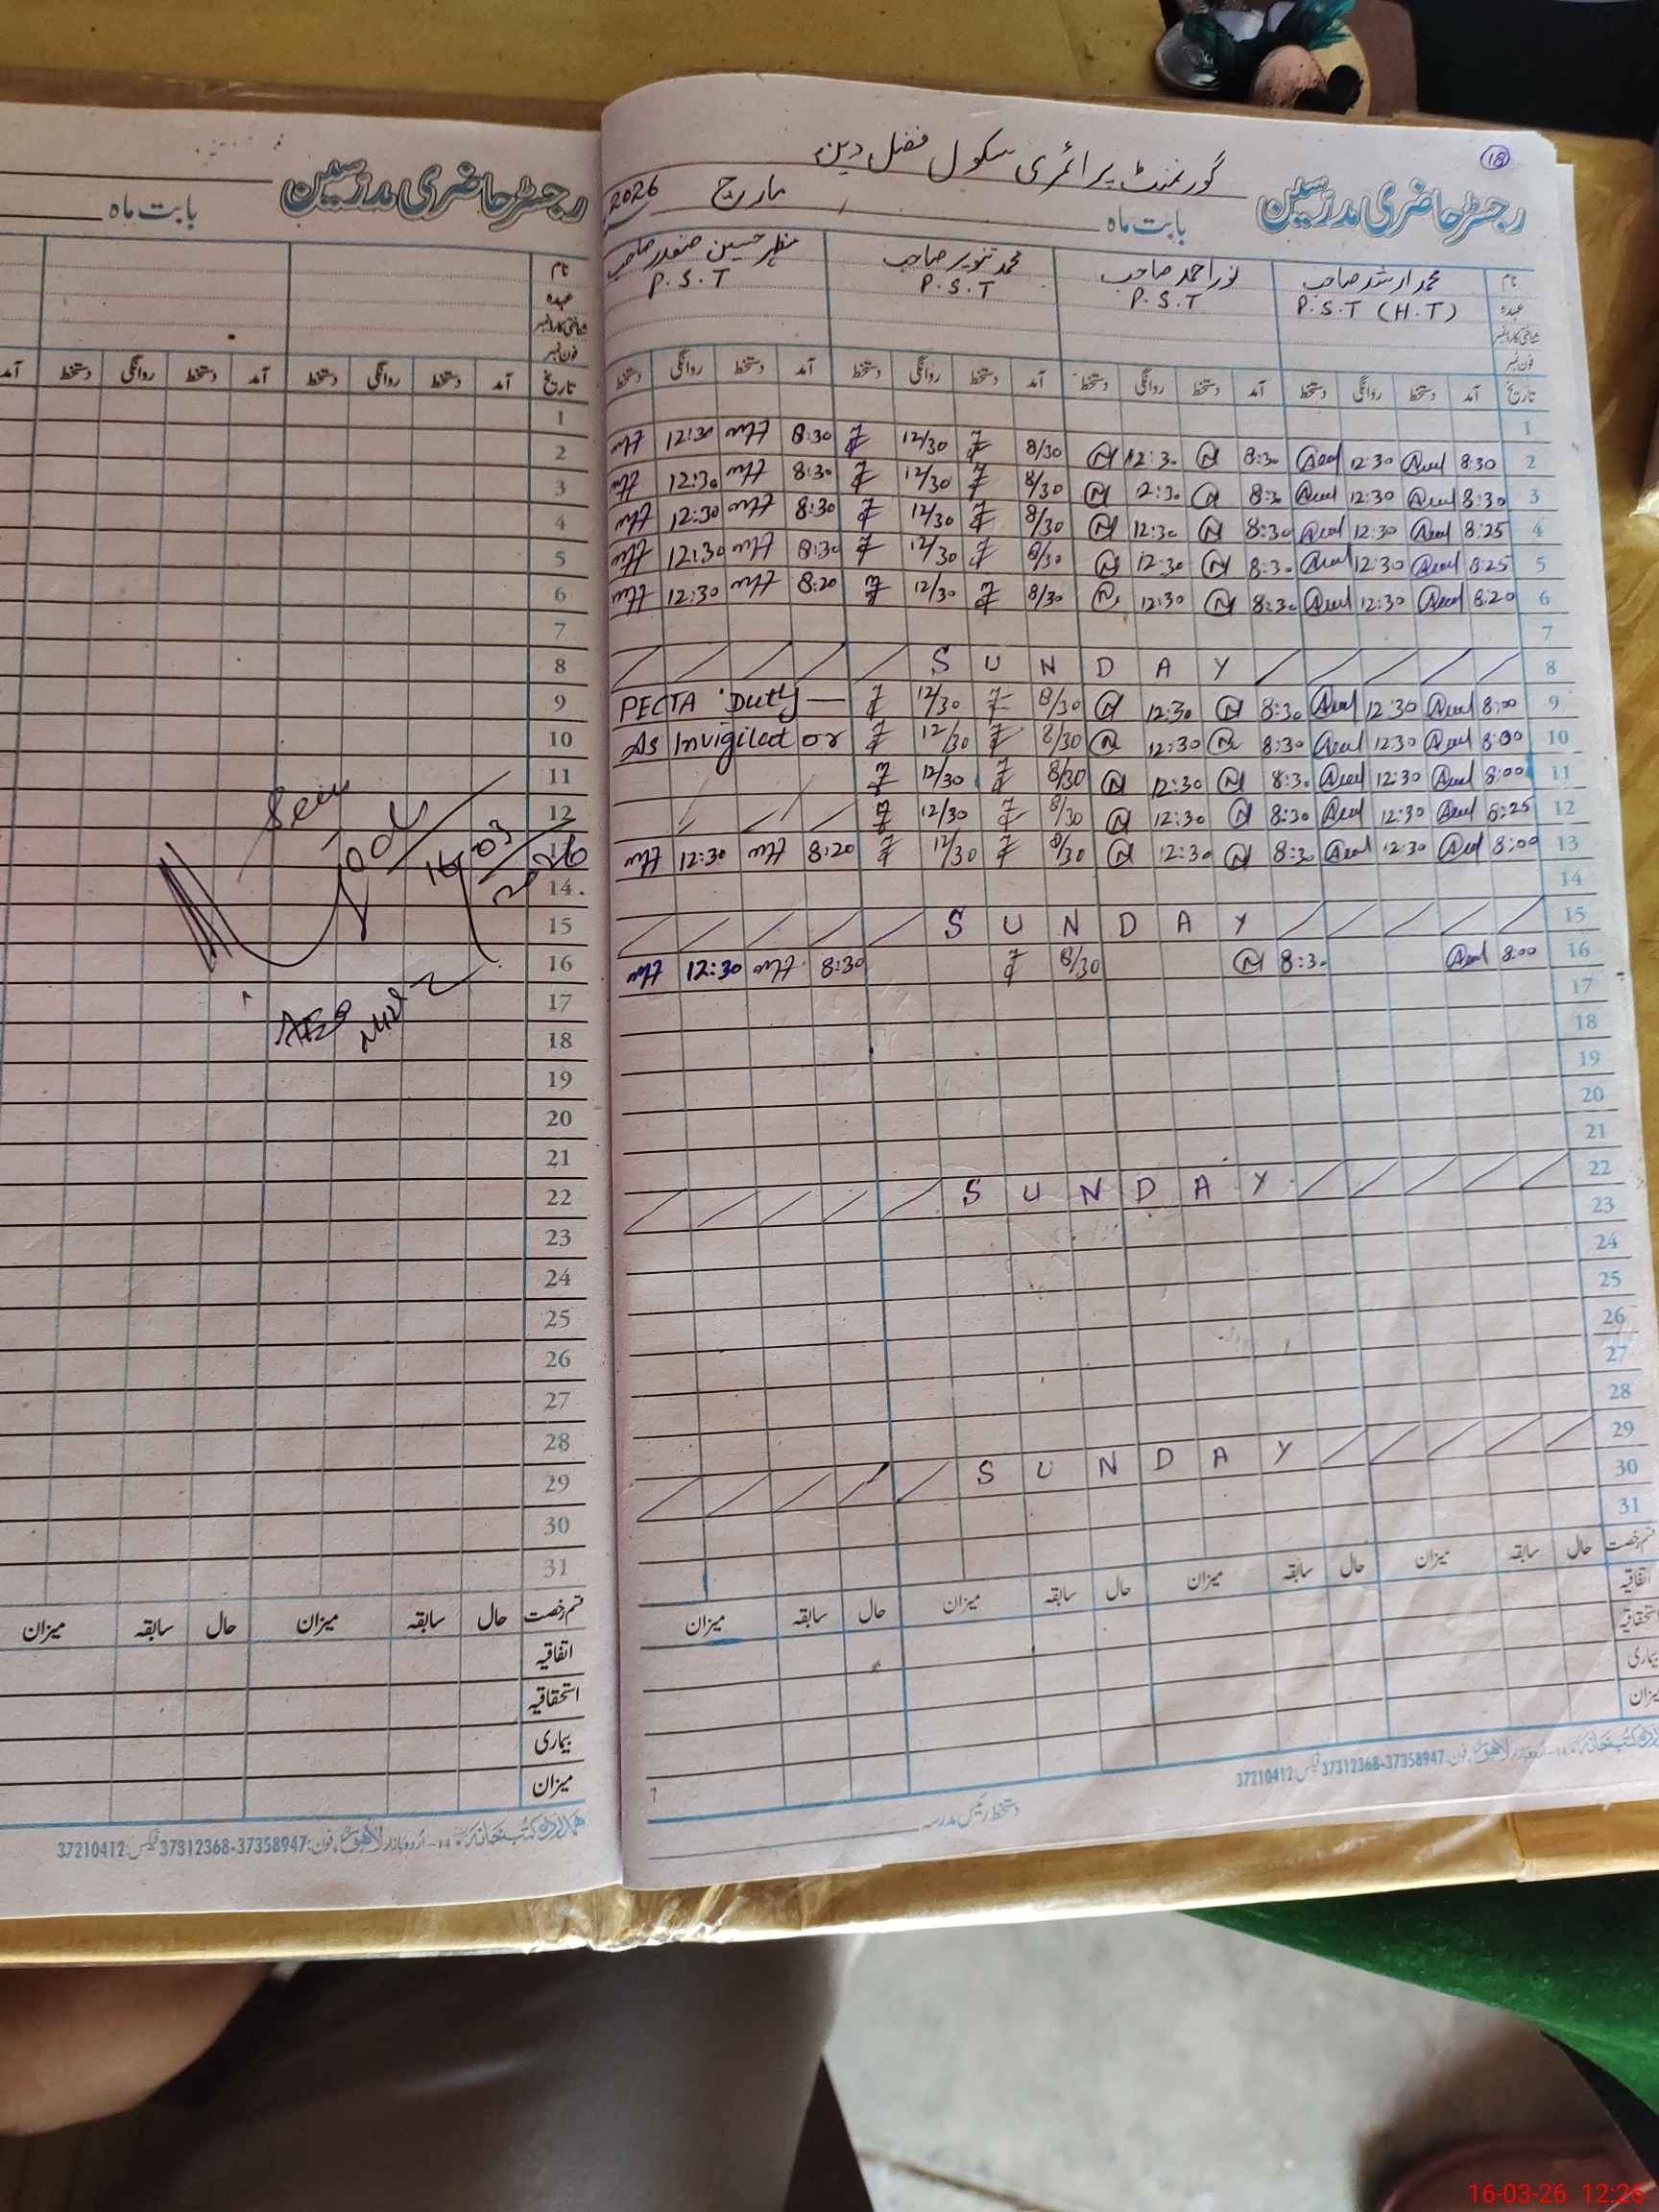 18
گورنمنٹ پرائمری سکول فضل دین
رجسٹر حاضری مدرسین بابت ماہ مارچ 2026
نام محمد ارشد صاحب نور احمد صاحب محمد تنویر صاحب منظر حسین صفدر صاحب
عہدہ P.S.T (H.T) P.S.T P.S.T P.S.T
شناختی کارڈ نمبر
فون نمبر
تاریخ آمد دستخط روانگی دستخط آمد دستخط روانگی دستخط آمد دستخط روانگی دستخط آمد دستخط روانگی دستخط
1
2 8:30 12:30 8:30 12:30 8/30 12/30 8:30 12:30
3 8:30 12:30 8:30 2:30 8/30 12/30 8:30 12:30
4 8:25 12:30 8:30 12:30 8/30 12/30 8:30 12:30
5 8:25 12:30 8:30 12:30 8/30 12/30 8:30 12:30
6 8:20 12:30 8:30 12:30 8/30 12/30 8:20 12:30
7
8 SUNDAY
9 8:00 12:30 8:30 12:30 8/30 12/30 PECTA Duty
10 8:00 12:30 8:30 12:30 8/30 12/30 As Invigilator
11 8:00 12:30 8:30 12:30 8/30 12/30
12 8:25 12:30 8:30 12:30 8/30 12/30
13 8:00 12:30 8:30 12:30 8/30 12/30 8:20 12:30
14
15 SUNDAY
16 8:00 8:30 8/30 8:30 12:30
17
18
19
20
21
22 SUNDAY
23
24
25
26
27
28
29 SUNDAY
30
31
قسم رخصت حال سابقہ میزان حال سابقہ میزان حال سابقہ میزان حال سابقہ میزان
اتفاقیہ
استحقاقیہ
بیماری
میزان
لاہور فون: 37358947-37312368 فیکس: 37210412
دستخط رئیس مدرسہ
رجسٹر حاضری مدرسین
بابت ماہ
نام
عہدہ
شناختی کارڈ نمبر
فون نمبر
تاریخ آمد دستخط روانگی دستخط آمد دستخط روانگی دستخط آمد
1
2
3
4
5
6
7
8
9
10
11
Seen
12
16/03/2026
14
15
16
17
AEO
18
19
20
21
22
23
24
25
26
27
28
29
30
31
قسم رخصت حال سابقہ میزان حال سابقہ میزان
اتفاقیہ
استحقاقیہ
بیماری
میزان
ہمدرد کتب خانہ 14-اردو بازار لاہور، فون: 37358947-37312368 فیکس: 37210412
16-03-26 12:26